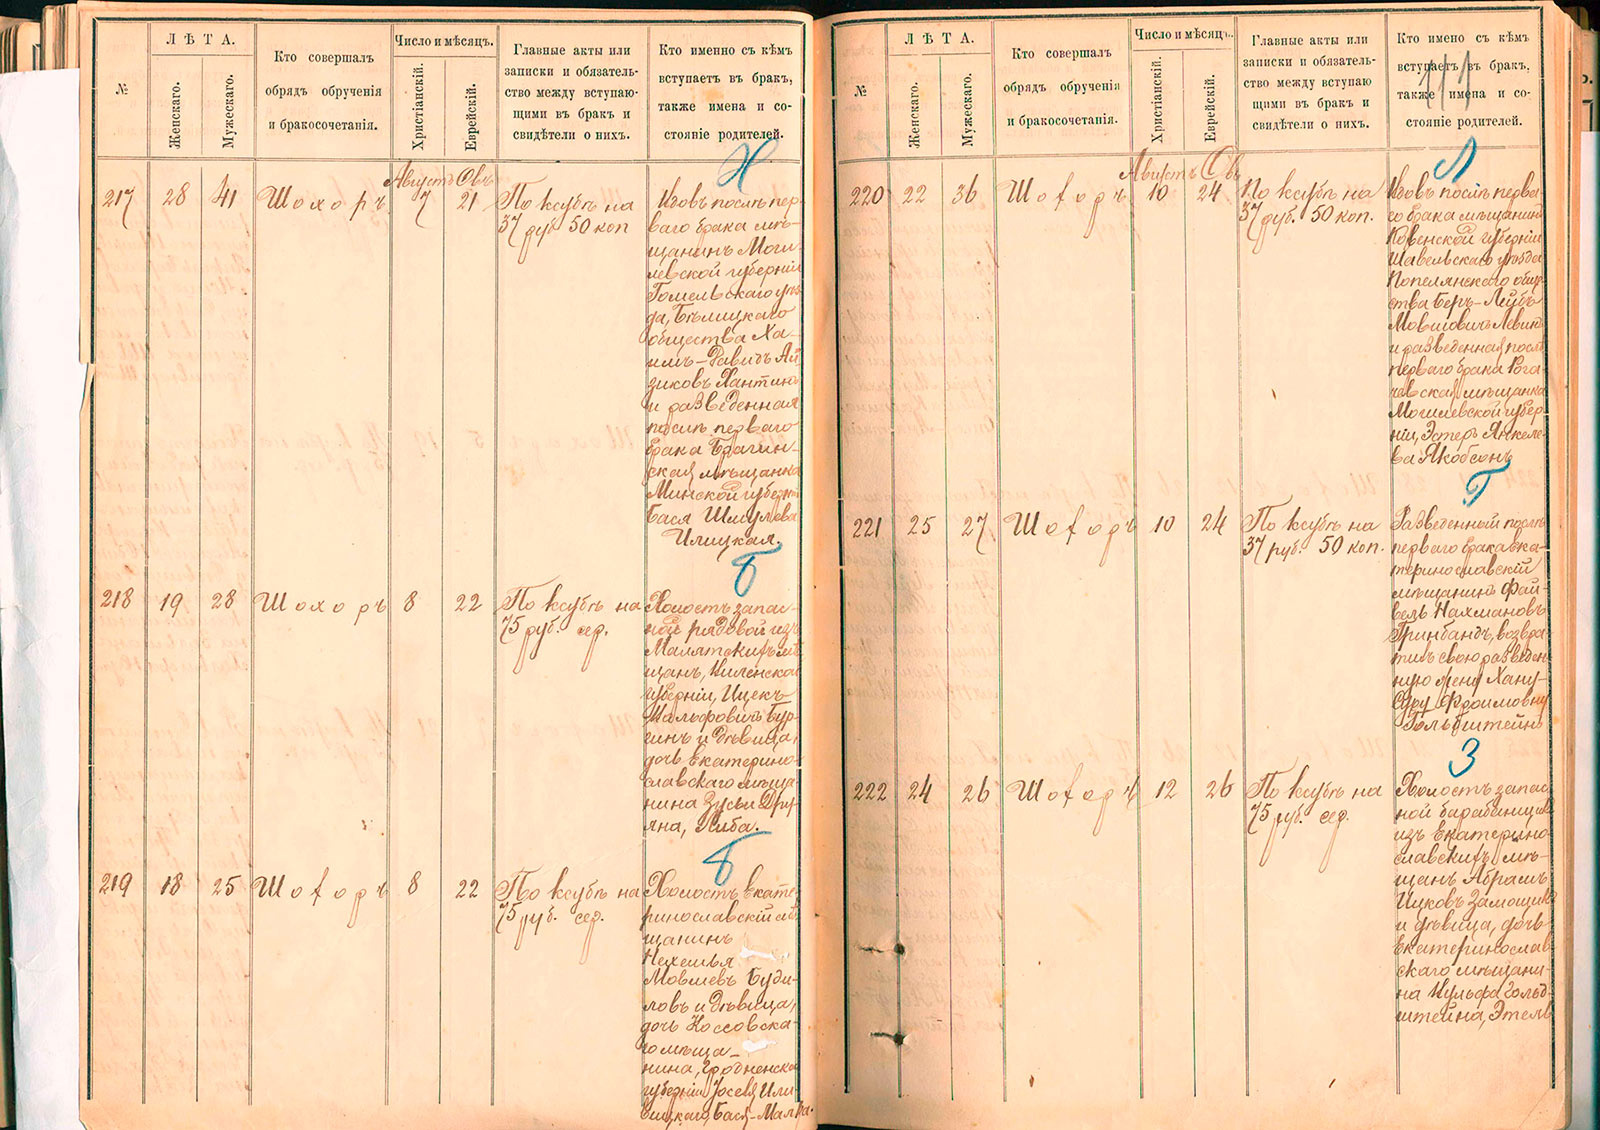 №
ЛѢТА.
Женскаго.
Мужескаго.
Кто совершалъ
обрядъ обрученія
и бракосочетанія.
Число и мѣсяцъ.
Христіанскій.
Еврейскій.
Главные акты или
записки и обязатель-
ство между вступаю-
щими въ бракъ и
свидѣтели о нихъ.
Кто именно съ кѣмъ
вступаетъ въ бракъ,
также имена и со-
стояніе родителей.
Н
Августъ Овъ
217 28 41 Шохоръ 7 21
По ксубѣ на
37 руб 50 коп
Вдовъ послѣ пер-
ваго брака мѣ-
щанинъ Моги-
левской губерніи
Гомельскаго уѣз-
да, Бѣлицкаго
общества Ха-
имъ-Давидъ Ай-
зиковъ Хантинъ
и разведенная
послѣ перваго
брака Брагин-
ская мѣщанка
Минской губерніи
Бася Шмулева
Илицкая.
Б
218 19 28 Шохоръ 8 22
По ксубѣ на
75 руб. сер.
Холостъ запас-
ной рядовой изъ
Малятскихъ мѣ-
щанъ, Виленской
губерніи, Ицекъ
Шальфовичъ Бур-
гинъ и дѣвица,
дочь Екатерино-
славскаго мѣща-
нина Зусьи
Б
219 18 25 Шоfоръ 8 22
По ксубѣ на
75 руб. сер.
Холостъ Екате-
ринославскій мѣ-
щанинъ
Нехемья
Мовшевъ Буди-
ловъ и дѣвица,
дочь Коссовска-
го мѣща-
нина, Гродненской
губерніи Іосея Или-
вицкаго, Бася-Малка.
№
ЛѢТА.
Женскаго.
Мужескаго.
Кто совершалъ
обрядъ обрученія
и бракосочетанія.
Число и мѣсяцъ.
Христіанскій.
Еврейскій.
Главные акты или
записки и обязатель-
ство между вступаю
щими въ бракъ и
свидѣтели о нихъ.
Кто имено съ кѣмъ
вступаетъ въ бракъ,
также имена и со-
стояніе родителей.
111
Л
Августъ Овъ
220 22 36 Шоfоръ 10 24
По ксубѣ на
37 руб. 50 коп.
Вдовъ послѣ перва-
го брака мѣщанинъ
Ковенской губерніи
Шавельскаго уѣзда
Попелянскаго обще-
ства Беръ-Лейбъ
Мовшовичъ Левинъ
и разведенная послѣ
перваго брака Рога-
чевская мѣщанка
Могилевской губер-
ніи, Эстеръ Янкеле-
ва Якобсонъ
Г
221 25 27 Шоfоръ 10 24
По ксубѣ на
37 руб. 50 коп.
Разведенный послѣ
перваго брака Ека-
теринославскій
мѣщанинъ Фай-
вель Нахмановъ
Гринбандъ, возвра-
тилъ свою разведен-
ную жену Хану-
Сару Фроимовну
Гольдштейнъ
З
222 24 26 Шоfоръ 12 26
По ксубѣ на
75 руб. сер.
Холостъ запас-
ной барабанщикъ
изъ Екатерино-
славскихъ мѣ-
щанъ Абрамъ
Ицковъ Замощикъ
и дѣвица, дочь
Екатеринослав-
скаго мѣщани-
на Вульфа Гольд-
штейна, Этель